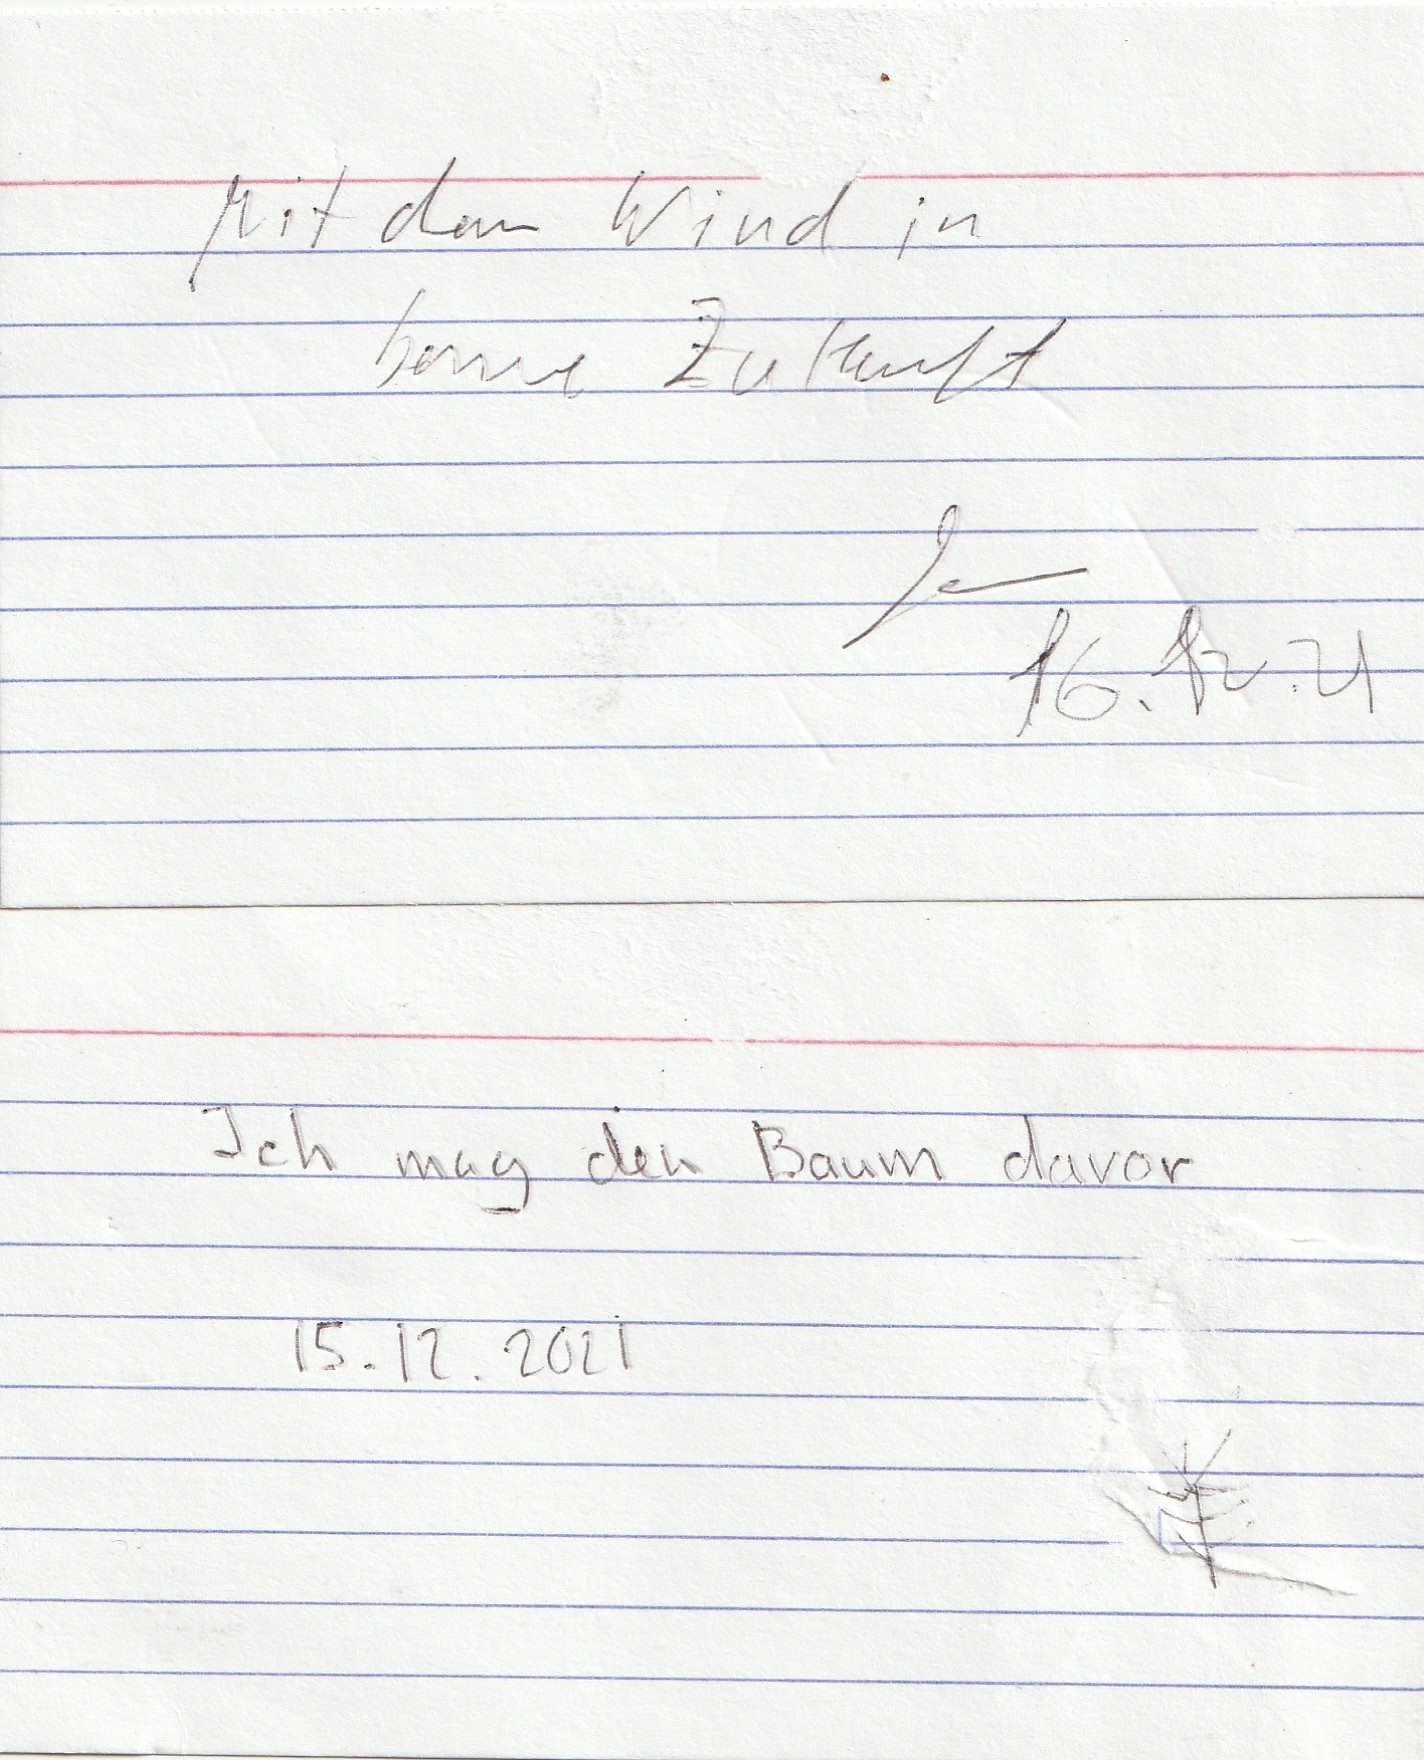 Mit dem Wind in
Zukunft
16.12.21
Ich mag den Baum davor
15.12.2021